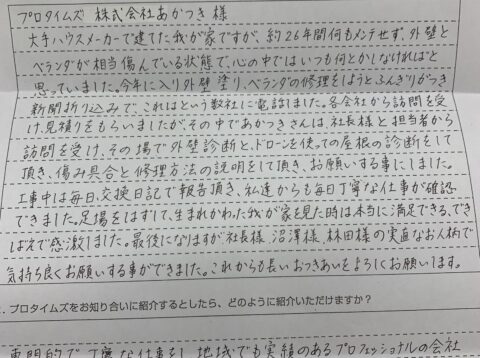 プロタイムズ 株式会社あかつき 様
大手ハウスメーカーで建てた我が家ですが、約26年間何もメンテせず、外壁と
ベランダが相当傷んでいる状態で、心の中ではいつも何とかしなければと
思っていました。今年に入り外壁塗り、ベランダの修理をしようとふんぎりがつき
新聞折り込みで、これはという数社に電話しました。各会社から訪問を受
け、見積りをもらいましたが、その中であかつきさんは、社長様と担当者から
訪問を受け、その場で外壁診断と、ドローンを使っての屋根の診断をして
頂き、傷み具合と修理方法の説明をして頂き、お願いする事にしました。
工事中は毎日、交換日記で報告頂き、私達からも毎日丁寧な仕事が確認
できました。足場をはずして、生まれかわった我が家を見た時は本当に満足できる、でき
ばえで感激しました。最後になりますが社長様、沼澤様、林田様の実直なお人柄で
気持ち良くお願いする事ができました。これからも長いおつきあいをよろしくお願いします。
.プロタイムズをお知り合いに紹介するとしたら、どのように紹介いただけますか?
専門的で丁寧な仕事をし、地域でも実績のあるプロフェッショナルの会社